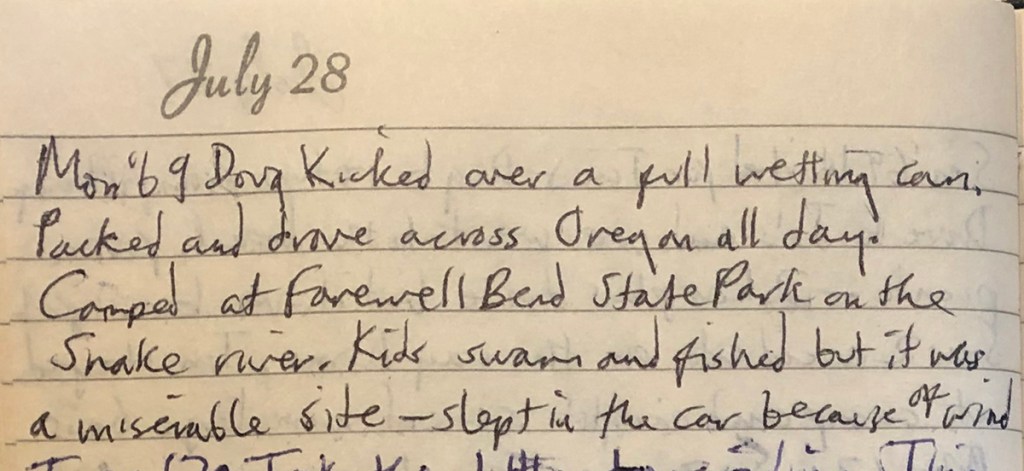 July 28
Mon '69 Doug Kicked over a full wetting can.
Packed and drove across Oregon all day.
Camped at Farewell Bend State Park on the
Snake river. Kids swam and fished but it was
a miserable site - slept in the car because of wind